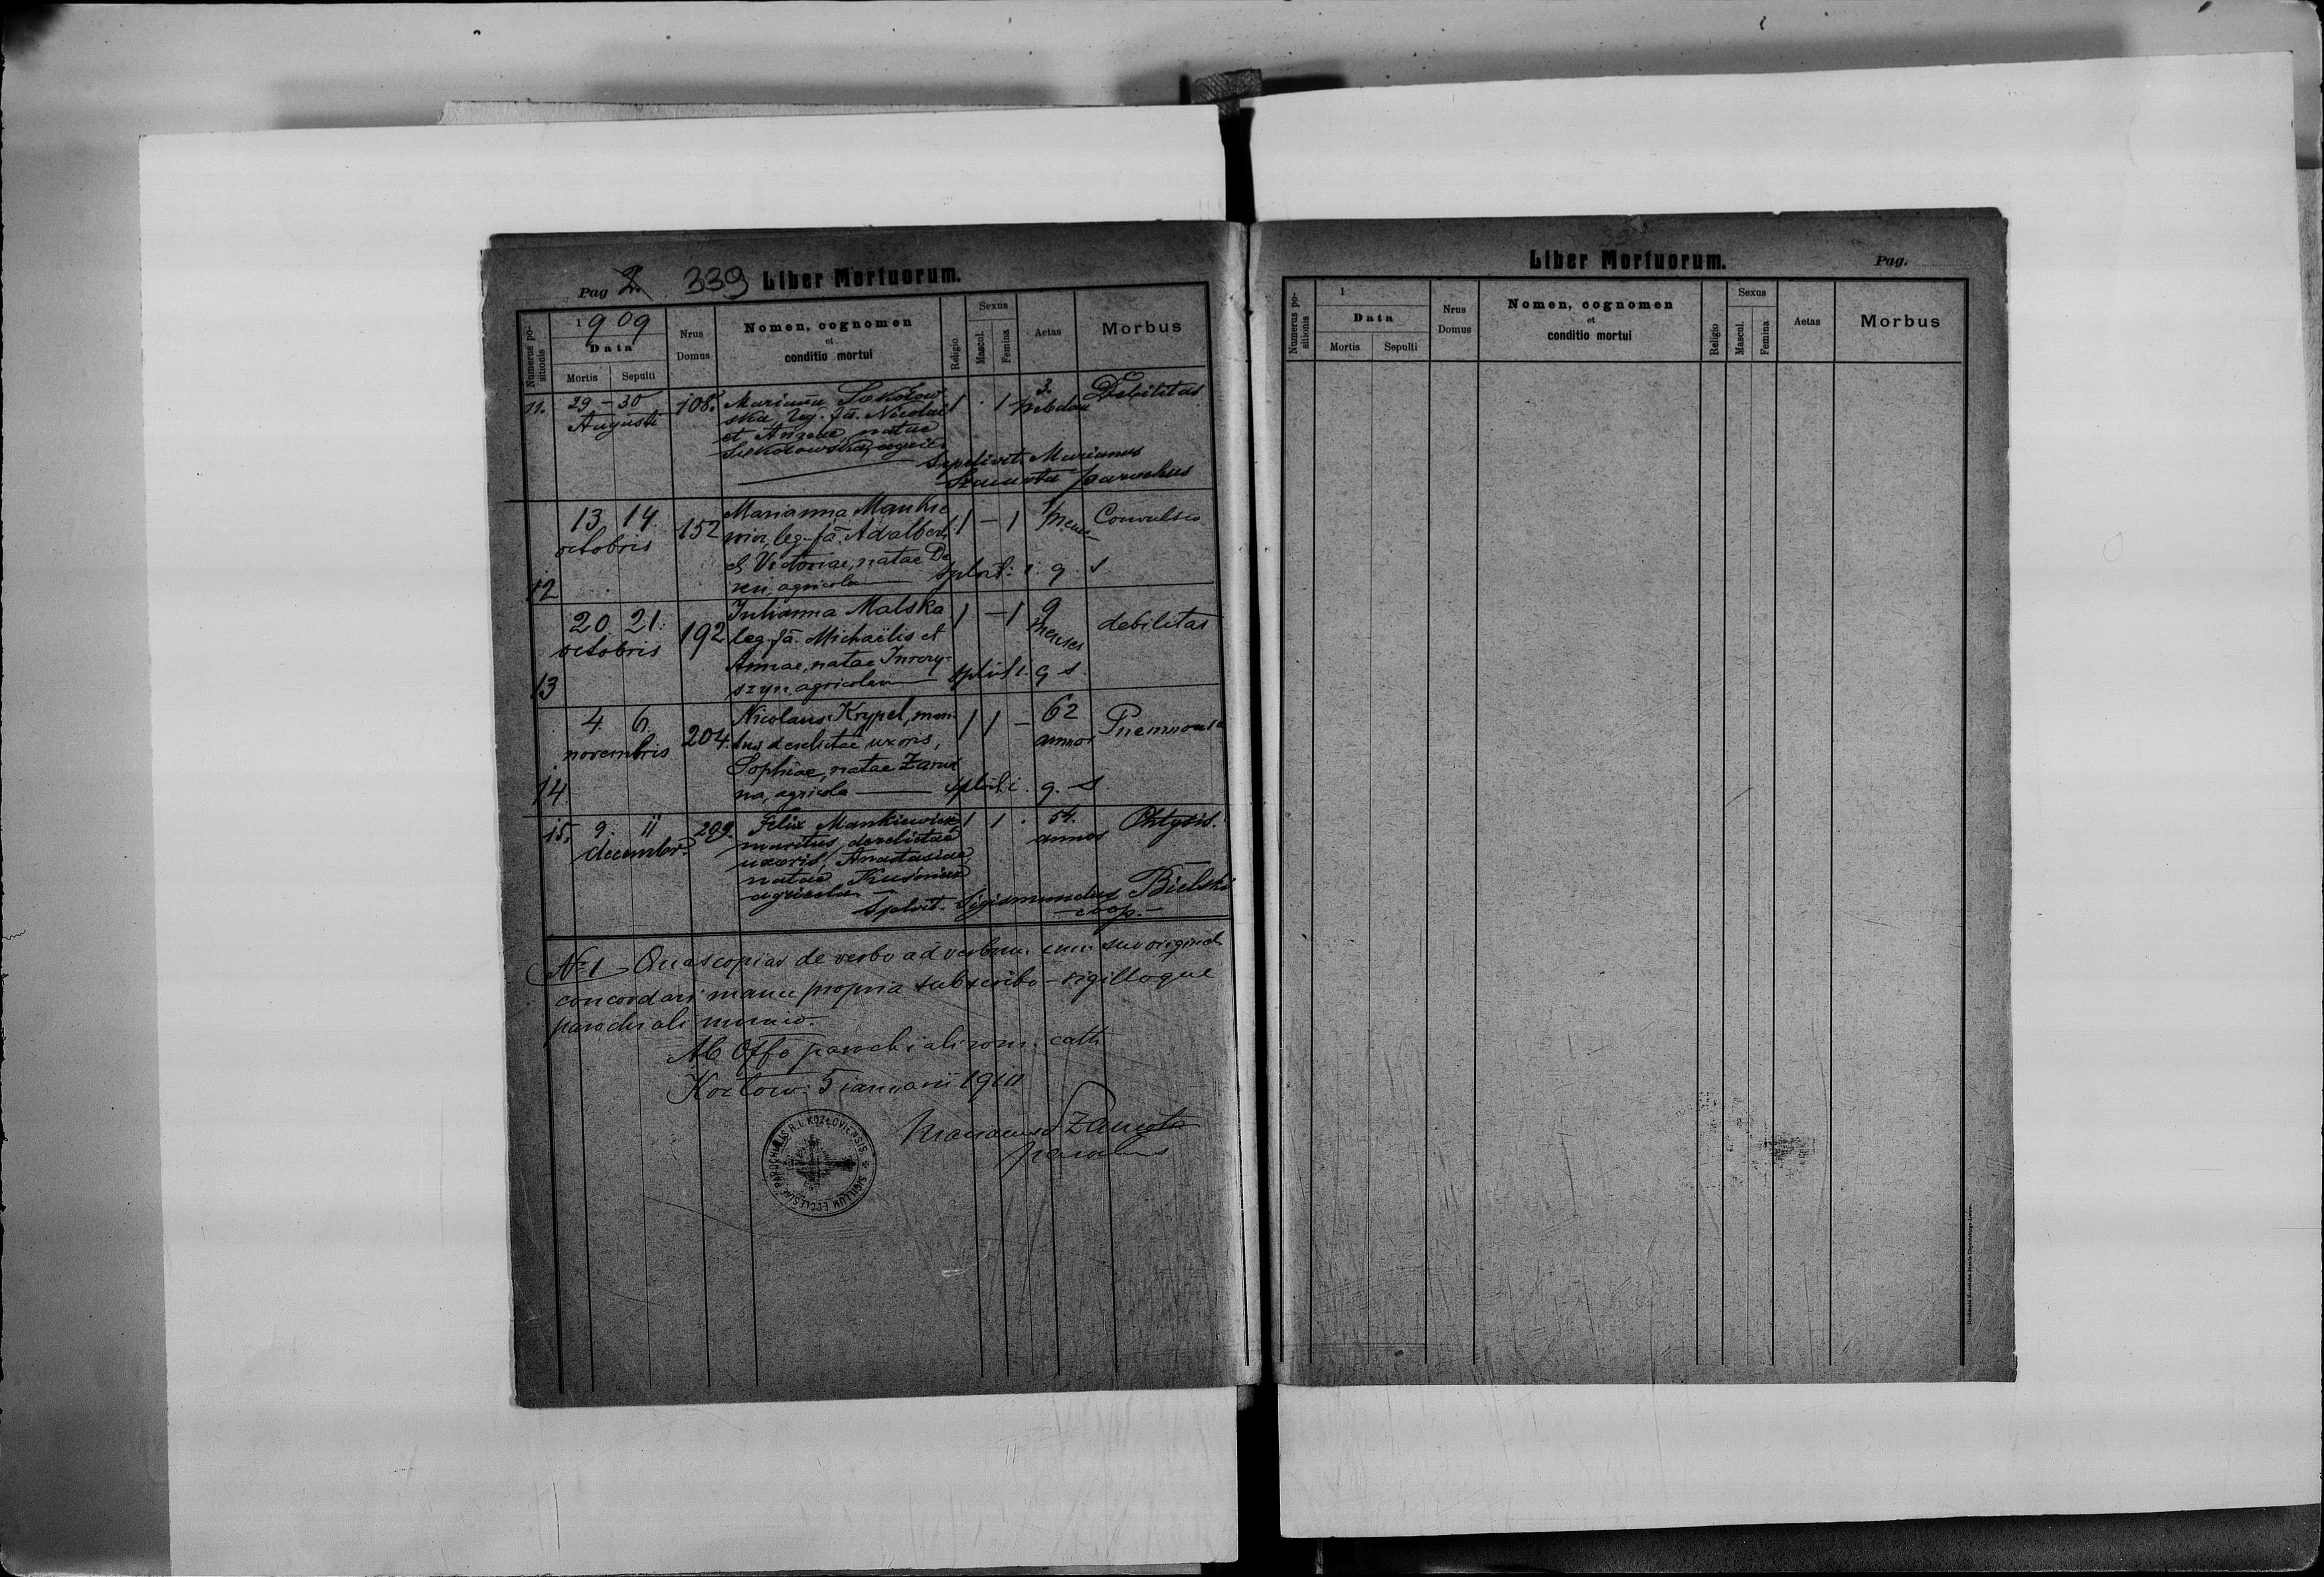 Pag 2. 339 Liber Mortuorum.
Numerus positionis
1909
Data
Mortis Sepulti
Nrus Domus
Nomen, cognomen
et
conditio mortui
Religio
Sexus
Mascul. Femina
Aetas
Morbus
11. 29 - 30 108. Marianna Sokołow 1 . 1 3. Debilitas
Augusti ska leg. fa. Nicolai hebdom
et natae
Sokołowska
Sepelivit Marianus
Szamota parochus
13 14 152 Marianna Mankie 1 - 1 1 Convulsio
octobris wicz, leg. fa. Adalberti mense
et Victoriae, natae De
12 agricola splvit: i. q. s.
20 21. 192 Julianna Malska 1 - 1 9 debilitas
octobris leg. fa. Michaëlis et menses
Annae, natae
13 szyn. agricolen splvit i. q s.
4. 6. 204. Nicolaus Krypel, mari 1 1 - 62
novembris tus derelictae uxoris, annos
Sophiae, natae
14. na, agricola splvit. i. q. s.
15. 9. 11 299. Felix Mankiewicz 1 1 . 54. Phtysis.
decembr. maritus, derelictae annos
uxoris, Anastasiae
natae
agricola
Splvit. Sigismundus Bielski
coop.
№ 1 Quas copias de verbo ad verbum cum suo original
concordari manu propria subscribo - sigilloque
parochiali munio.
Ab Offo parochiali rom. cath
Kozłow: 5 januarii 1910
Marianus Szamota
parochus
SIGILLUM ECCLESIAE PAROCHIALIS R. L. KOZŁOVIENSIS.
Liber Mortuorum. Pag.
Numerus positionis
1
Data
Mortis Sepulti
Nrus Domus
Nomen, cognomen
et
conditio mortui
Religio
Sexus
Mascul. Femina
Aetas
Morbus